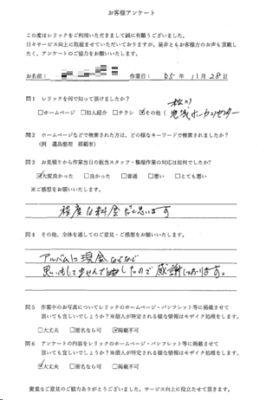 お客様アンケート
この度はレリックをご利用いただきまして誠に有難うございました。
日々サービス向上に取組ませていただいておりますが、是非ともお客様方のお声も頂戴したく、アンケートのご協力をお願いいたします。
お名前: 作業日: 05年 11月 28日
問1 レリックを何で知って頂けましたか?
□ホームページ □知人紹介 □チラシ ☑その他(
問2 ホームページなどで検索された方は、どの様なキーワードで検索されましたか?
(例 遺品整理 那覇市)
問3 お見積りから作業当日の担当スタッフ・整理作業の対応は如何でしたか?
☑大変良かった □良かった □普通 □悪い □とても悪い
※ご感想をお願いいたします。
程度な料金だと思います
問4 その他、全体を通してのご意見・ご感想をお願いいたします。
アルバムに現金など
思いもしてませんでしたので 感謝しております。
問5 作業中のお写真についてレリックのホームページ・パンフレット等に掲載させて頂いても宜しいでしょうか?※個人が特定される様な情報はモザイク処理をします。
□大丈夫 □匿名なら可 ☑掲載不可
問6 アンケートの内容をレリックのホームページ・パンフレット等に掲載させて頂いても宜しいでしょうか?※個人が特定される様な情報はモザイク処理をします。
☑大丈夫 □匿名なら可 □掲載不可
貴重なご意見のご協力ありがとうございました。サービス向上に役立たさせて頂きます。